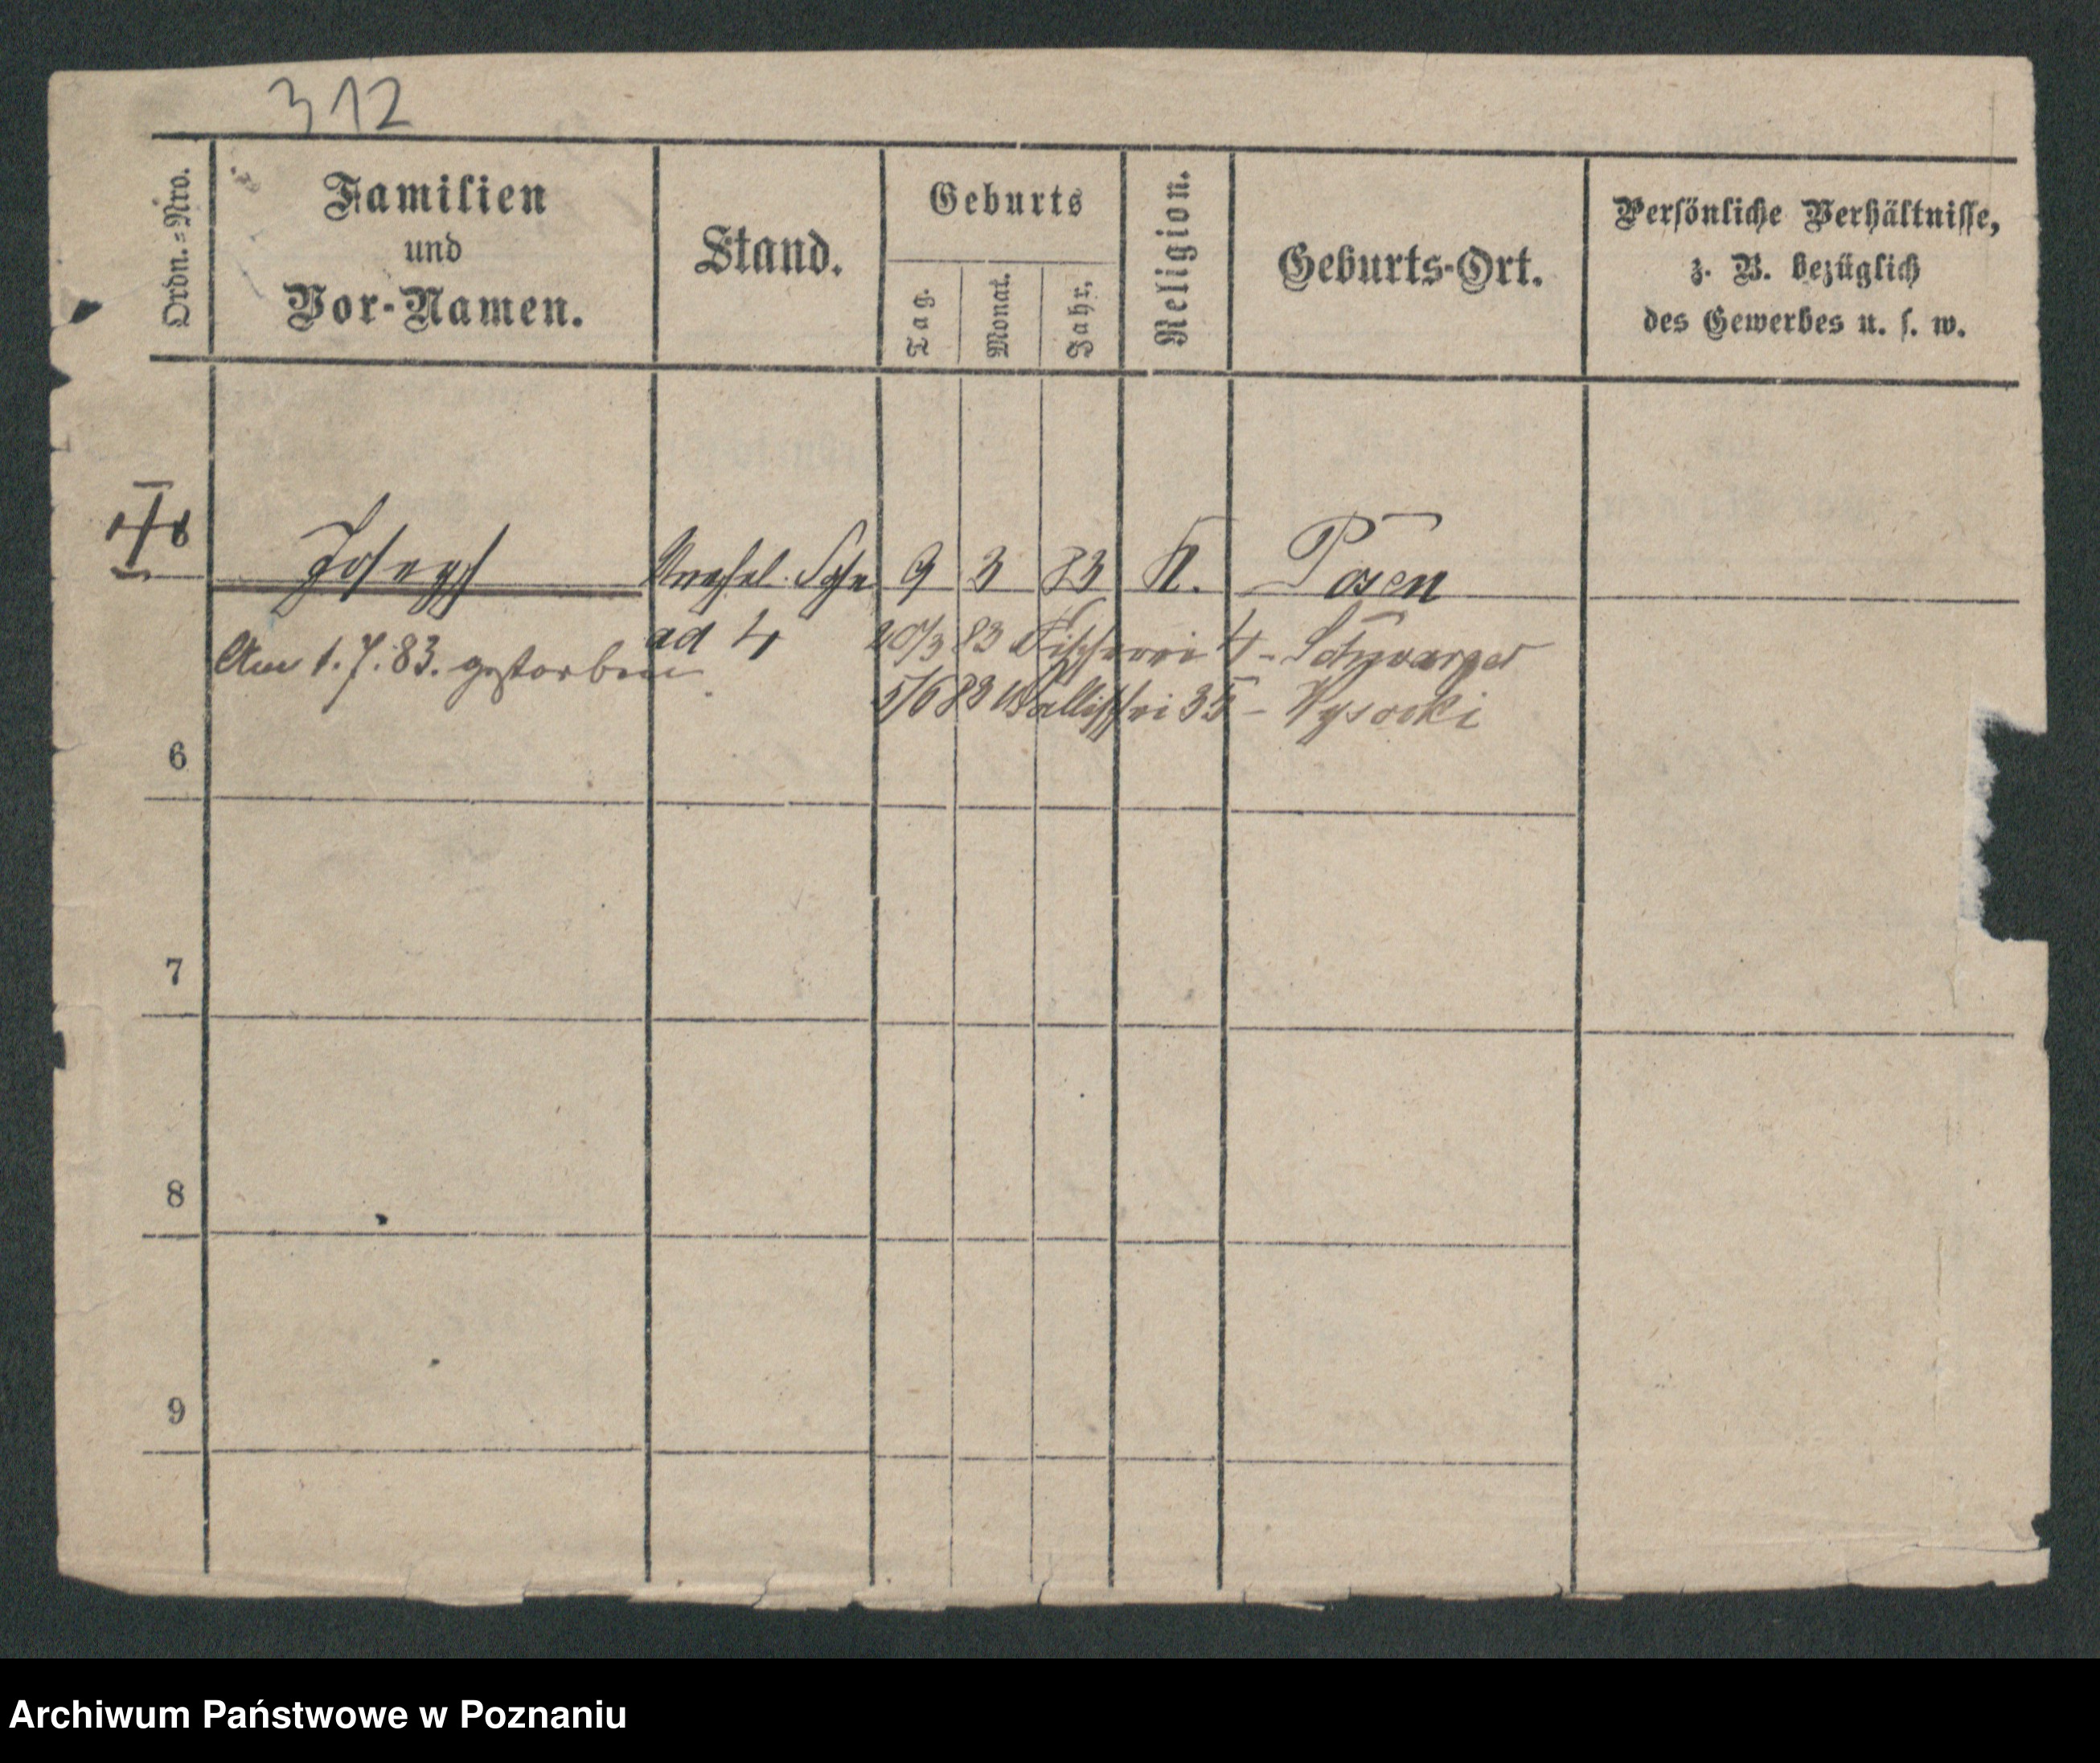 312
Ordn.=Nro.
Familien
und
Vor-Namen.
Stand.
Geburts
Tag.
Monat.
Jahr.
Religion.
Geburts-Ort.
Persönliche Verhältnisse,
z. B. bezüglich
des Gewerbes u. s. w.
Joseph Unehel. Sohn 9 3 83 K. Posen
ad 4 20/3 83 Fischerei 4 - Schwarzer
Am 1. 7. 83. gestorben
5/6 83 Wallischei 35 - Wysocki
6
7
8
9
Archiwum Państwowe w Poznaniu